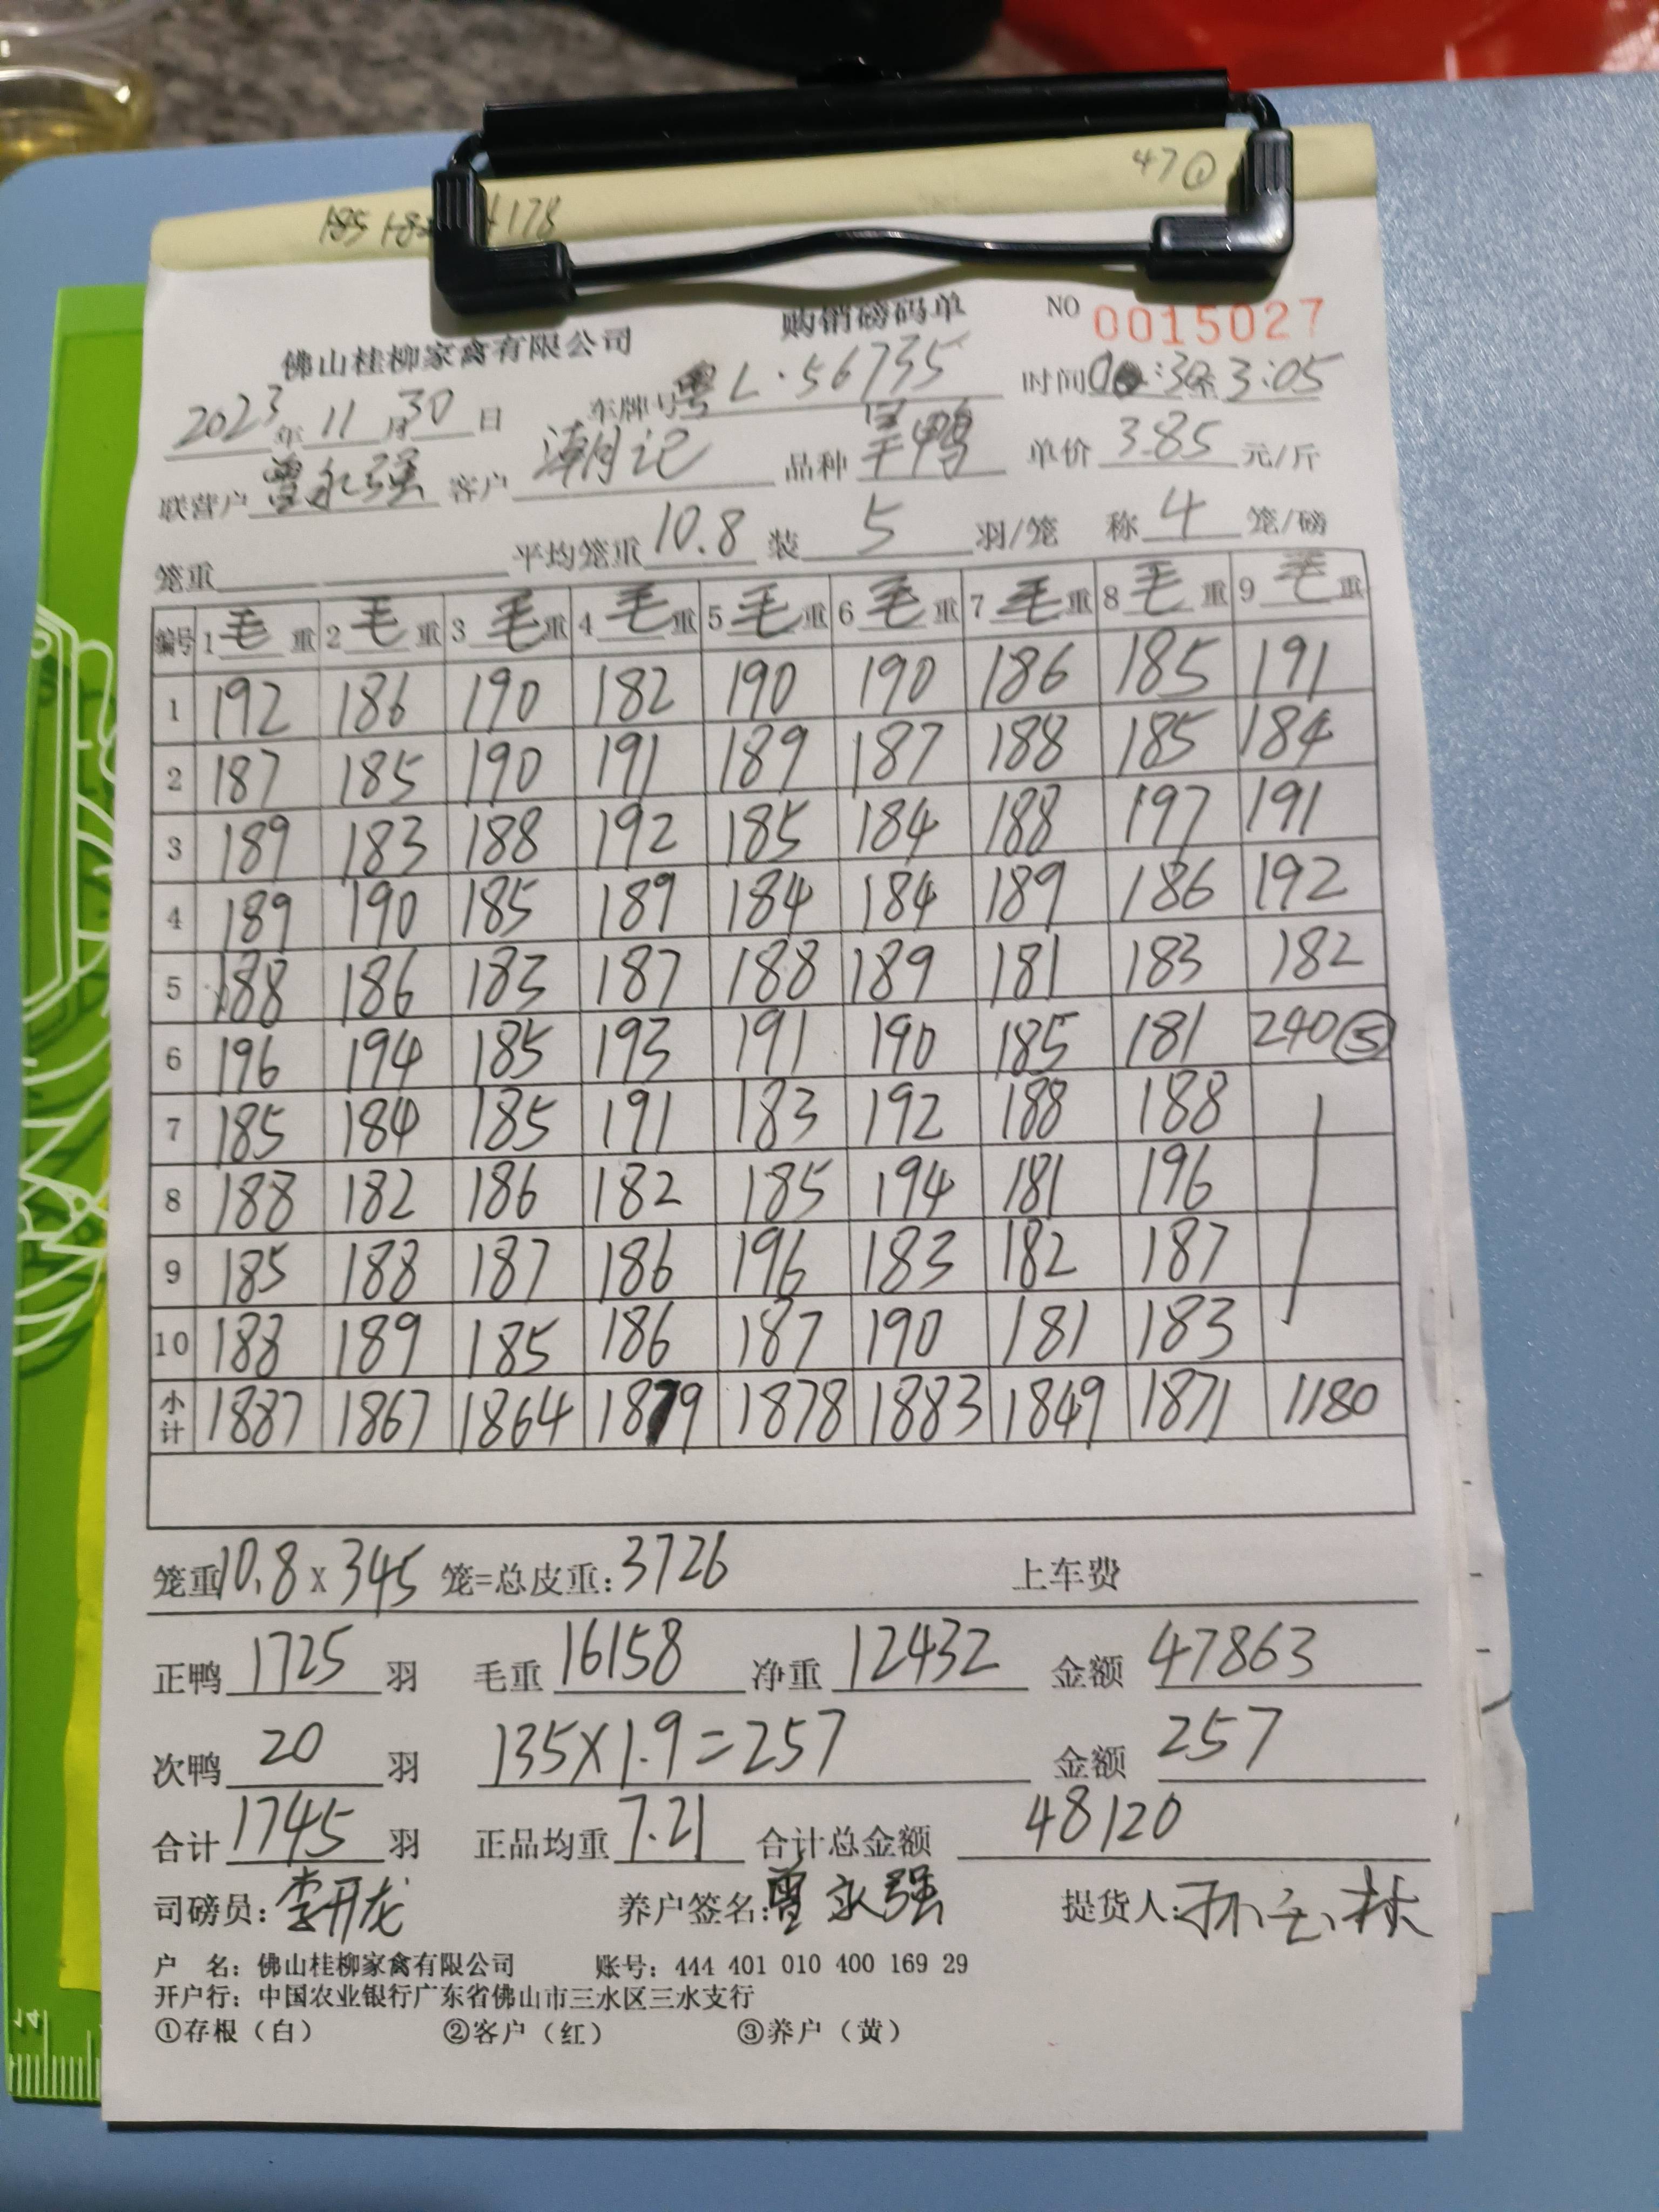 47①
178
佛山桂柳家禽有限公司 购销磅码单 NO 0015027
2023年11月30日 车牌号粤L·56735 时间 :30至3:05
联营户曾永强 客户潮记 品种 鸭 单价3.85元/斤
笼重 平均笼重10.8装5羽/笼 称4笼/磅
编号 1毛重 2毛重 3毛重 4毛重 5毛重 6毛重 7毛重 8毛重 9毛重
1 192 186 190 182 190 190 186 185 191
2 187 185 190 191 189 187 188 185 184
3 189 183 188 192 185 184 188 197 191
4 189 190 185 189 184 184 189 186 192
5 188 186 183 187 188 189 181 183 182
6 196 194 185 193 191 190 185 181 240⑤
7 185 184 185 191 183 192 188 188
8 188 182 186 182 185 194 181 196
9 185 188 187 186 196 183 182 187
10 188 189 185 186 187 190 181 183
小计 1887 1867 1864 1879 1878 1883 1849 1871 1180
笼重10.8X345笼=总皮重:3726 上车费
正鸭1725羽 毛重16158 净重12432 金额47863
次鸭20羽 135X1.9=257 金额257
合计1745羽 正品均重7.21 合计总金额48120
司磅员:李开龙 养户签名:曾永强 提货人:
户 名: 佛山桂柳家禽有限公司 账号: 444 401 010 400 169 29
开户行: 中国农业银行广东省佛山市三水区三水支行
①存根（白） ②客户（红） ③养户（黄）
14